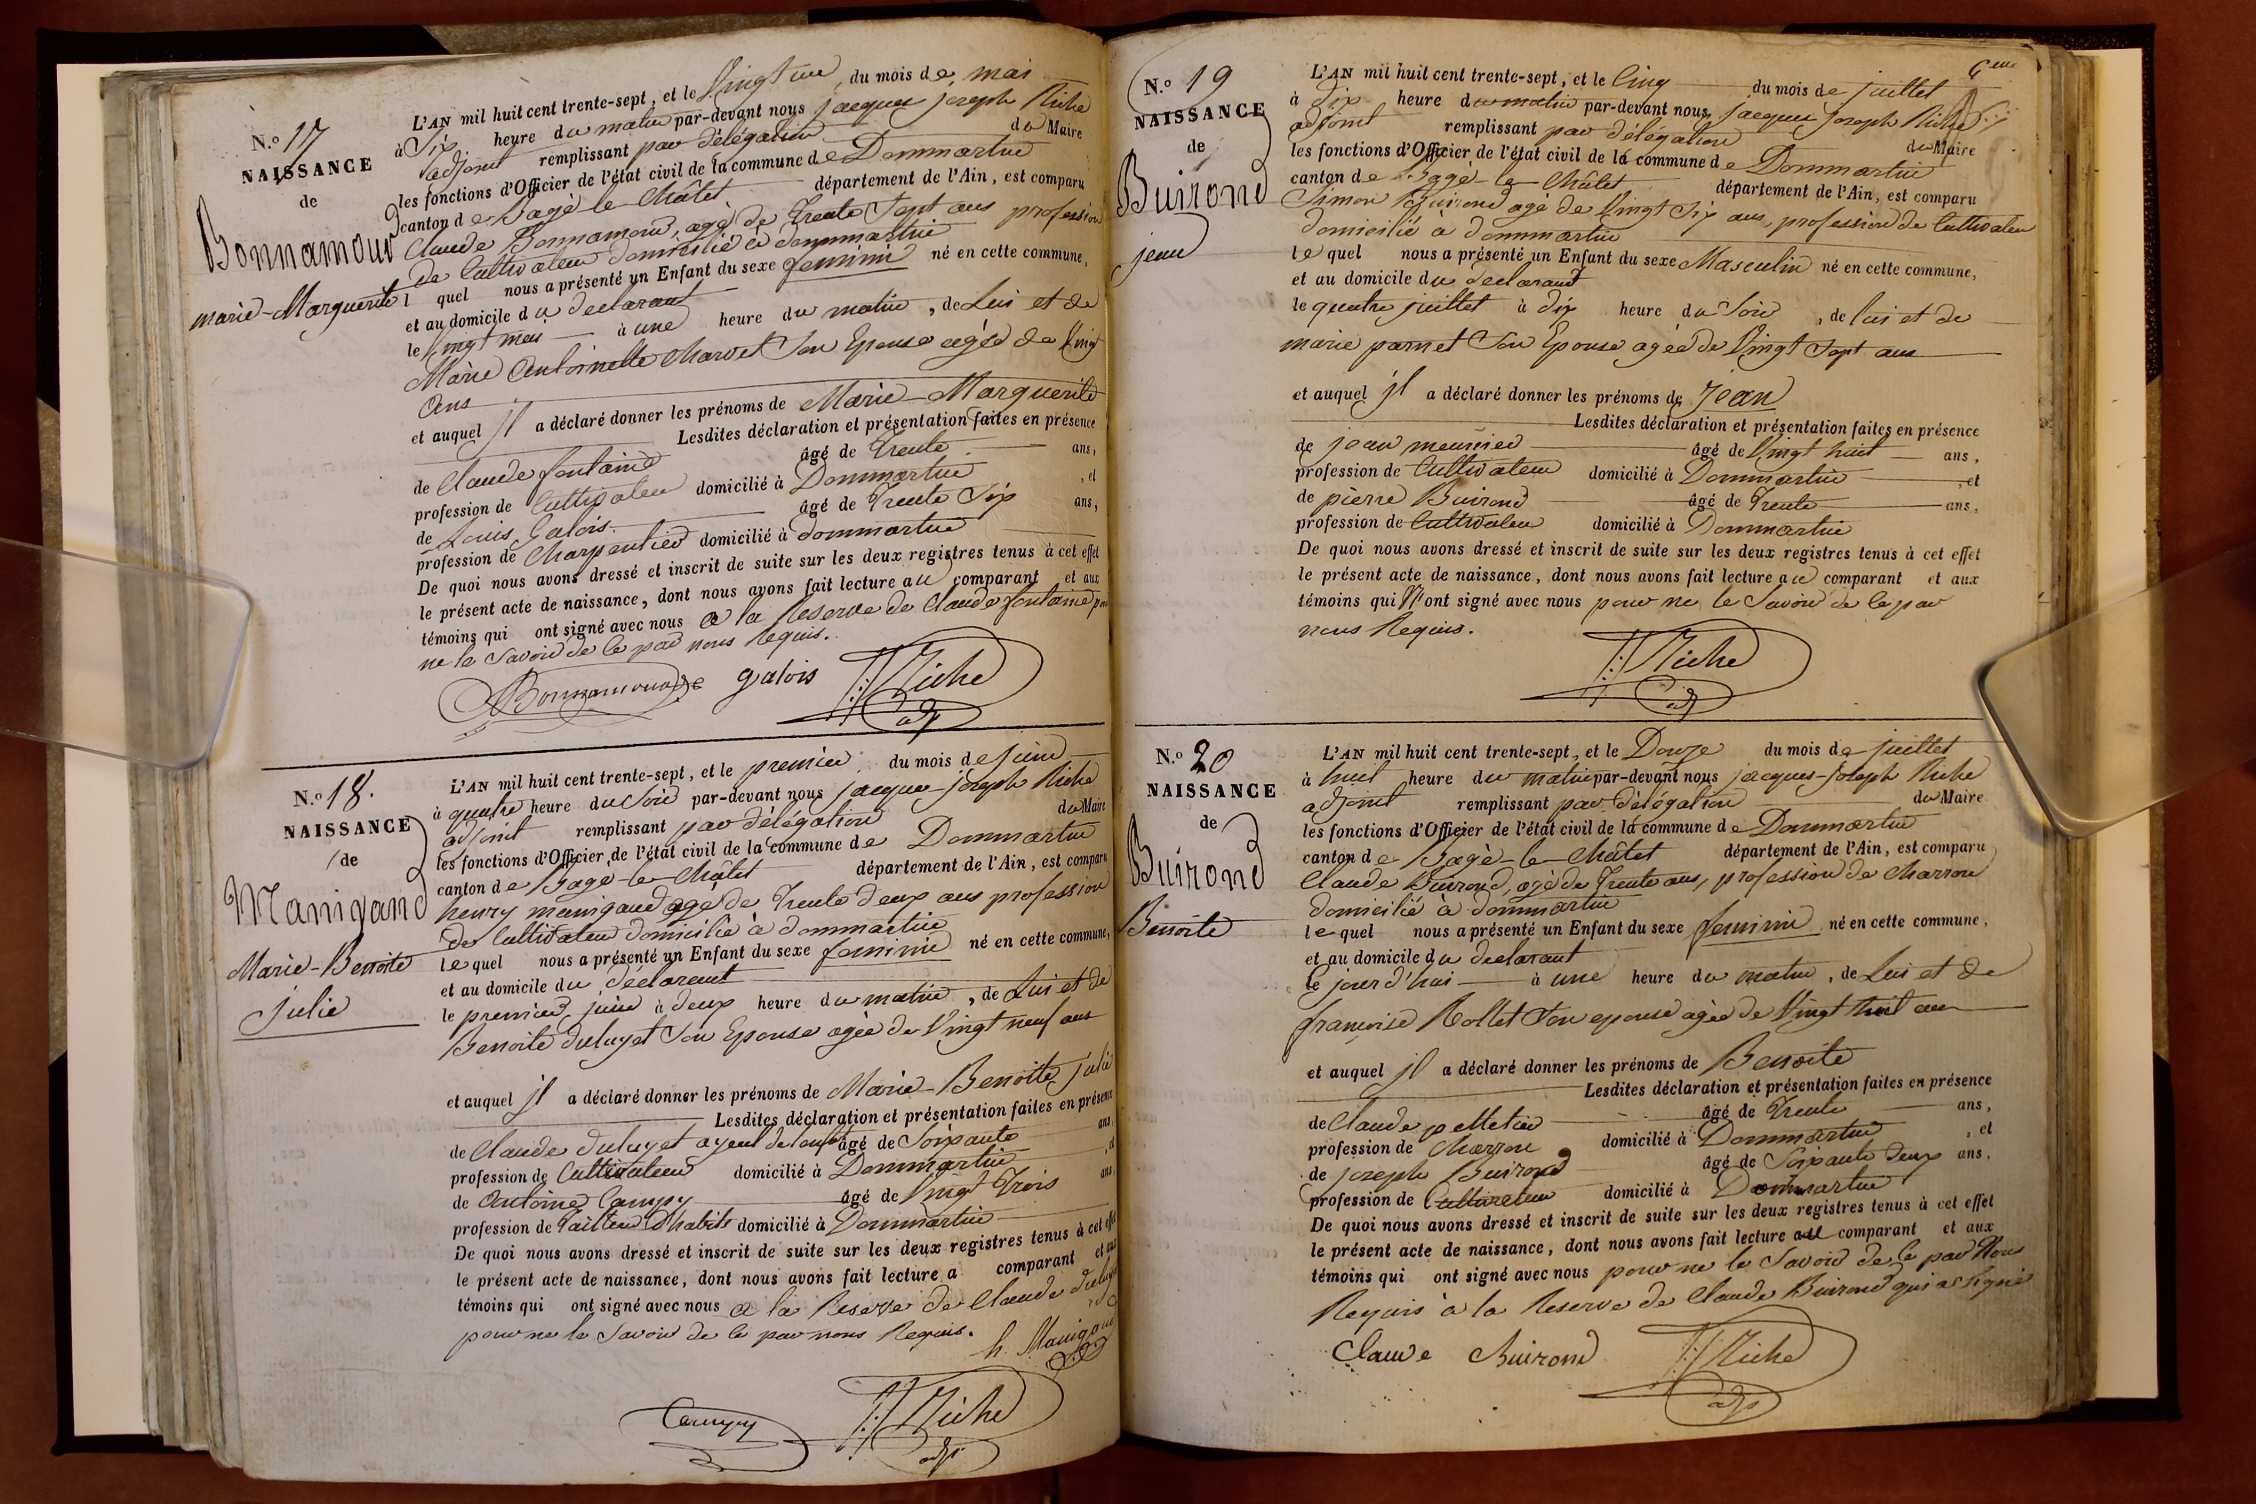 N.º 17
NAISSANCE
de
Bonnamour
marie-Marguerite
L'AN mil huit cent trente-sept, et le Vingt un du mois de mai
à Six heure du matin par-devant nous jacques joseph Riche
adjoint remplissant par délégation du Maire
les fonctions d'Officier de l'état civil de la commune de Dommartin
canton de Bagé-le-Châtel département de l'Ain, est comparu
Claude Bonnamour, agé de Trente Sept ans profession
de Cultivateur domicilié à dommartin
l quel nous a présenté un Enfant du sexe feminin né en cette commune,
et au domicile du declarant
le Vingt mai à une heure du matin, de Lui et de
Marie Antoinette Marvet Son Epouse agée de Vingt
Ans
et auquel jl a déclaré donner les prénoms de Marie-Marguerite
Lesdites déclaration et présentation faites en présence
de Claude fontaine âgé de Trente ans,
profession de Cultivateur domicilié à Dommartin, et
de Louis Galois âgé de Trente Six ans,
profession de Charpentier domicilié à dommartin
De quoi nous avons dressé et inscrit de suite sur les deux registres tenus à cet effet
le présent acte de naissance, dont nous avons fait lecture au comparant et aux
témoins qui ont signé avec nous a la Reserve de Claude fontaine pour
ne le Savoir de ce par nous Requis.
Bonnamour galois Riche
adj
N.º 18.
NAISSANCE
de
Manigand
Marie-Benoite
julie
L'AN mil huit cent trente-sept, et le premier du mois de juin
à quatre heure du Soir par-devant nous jacques-joseph Riche
adjoint remplissant par délégation du Maire
les fonctions d'Officier de l'état civil de la commune de Dommartin
canton de Bagé-le-Châtel département de l'Ain, est comparu
henry manigand agé de Trente deux ans profession
de Cultivateur domicilié à dommartin
le quel nous a présenté un Enfant du sexe feminin né en cette commune,
et au domicile du déclarant
le premier juin à deux heure du matin, de Lui et de
Benoite duluyet Son Epouse agée de Vingt neuf ans
et auquel jl a déclaré donner les prénoms de Marie-Benoite julie
Lesdites déclaration et présentation faites en présence
de Claude duluyet ayeul de lenfant âgé de Soixante ans
profession de Cultivateur domicilié à Dommartin, et
de Antoine Campy âgé de Vingt Trois ans
profession de Tailleur d'habits domicilié à Dommartin
De quoi nous avons dressé et inscrit de suite sur les deux registres tenus à cet effet
le présent acte de naissance, dont nous avons fait lecture a comparant et aux
témoins qui ont signé avec nous a la Reserve de Claude duluyet
pour ne le Savoir de ce par nous Requis.
h. Manigand
Campy Riche
adj
6eme
N.º 19
NAISSANCE
de
Buirond
jean
L'AN mil huit cent trente-sept, et le Cinq du mois de juillet
à Dix heure du matin par-devant nous, jacques joseph Riche
adjoint remplissant par délégation du Maire
les fonctions d'Officier de l'état civil de la commune de Dommartin
canton de Bagé-le-Châtel département de l'Ain, est comparu
Simon Buirond agé de Vingt Six ans, profession de Cultivateur
domicilié à dommartin
le quel nous a présenté un Enfant du sexe Masculin né en cette commune,
et au domicile du declarant
le quatre juillet à dix heure du Soir, de lui et de
marie pamet Son Epouse agée de Vingt Sept ans
et auquel jl a déclaré donner les prénoms de jean
Lesdites déclaration et présentation faites en présence
de jean meunier âgé de Vingt huit ans,
profession de Cultivateur domicilié à Dommartin, et
de pierre Buirond âgé de Trente ans,
profession de Cultivateur domicilié à Dommartin
De quoi nous avons dressé et inscrit de suite sur les deux registres tenus à cet effet
le présent acte de naissance, dont nous avons fait lecture au comparant et aux
témoins qui N'ont signé avec nous pour ne le Savoir de ce par
nous Requis.
Riche
adj
N.º 20
NAISSANCE
de
Buirond
Benoite
L'AN mil huit cent trente-sept, et le Douze du mois de juillet
à huit heure du matin par-devant nous jacques-joseph Riche
adjoint remplissant par délégation du Maire
les fonctions d'Officier de l'état civil de la commune de Dommartin
canton de Bagé-le-Châtel département de l'Ain, est comparu
Claude Buirond, agé de Trente ans, profession de Charron
domicilié à dommartin
le quel nous a présenté un Enfant du sexe feminin né en cette commune,
et au domicile du declarant
le jour d'hui à une heure du matin, de Lui et de
françoise Rollet Son epouse agée de Vingt huit ans
et auquel jl a déclaré donner les prénoms de Benoite
Lesdites déclaration et présentation faites en présence
de Claude pelletier âgé de Trente ans,
profession de Charron domicilié à Dommartin, et
de joseph Buirond âgé de Soixante deux ans,
profession de Cultivateur domicilié à Dommartin
De quoi nous avons dressé et inscrit de suite sur les deux registres tenus à cet effet
le présent acte de naissance, dont nous avons fait lecture au comparant et aux
témoins qui ont signé avec nous pour ne le Savoir de ce par Nous
Requis à la Reserve de Claude Buirond qui a Signé
Claude Buirond Riche
adj